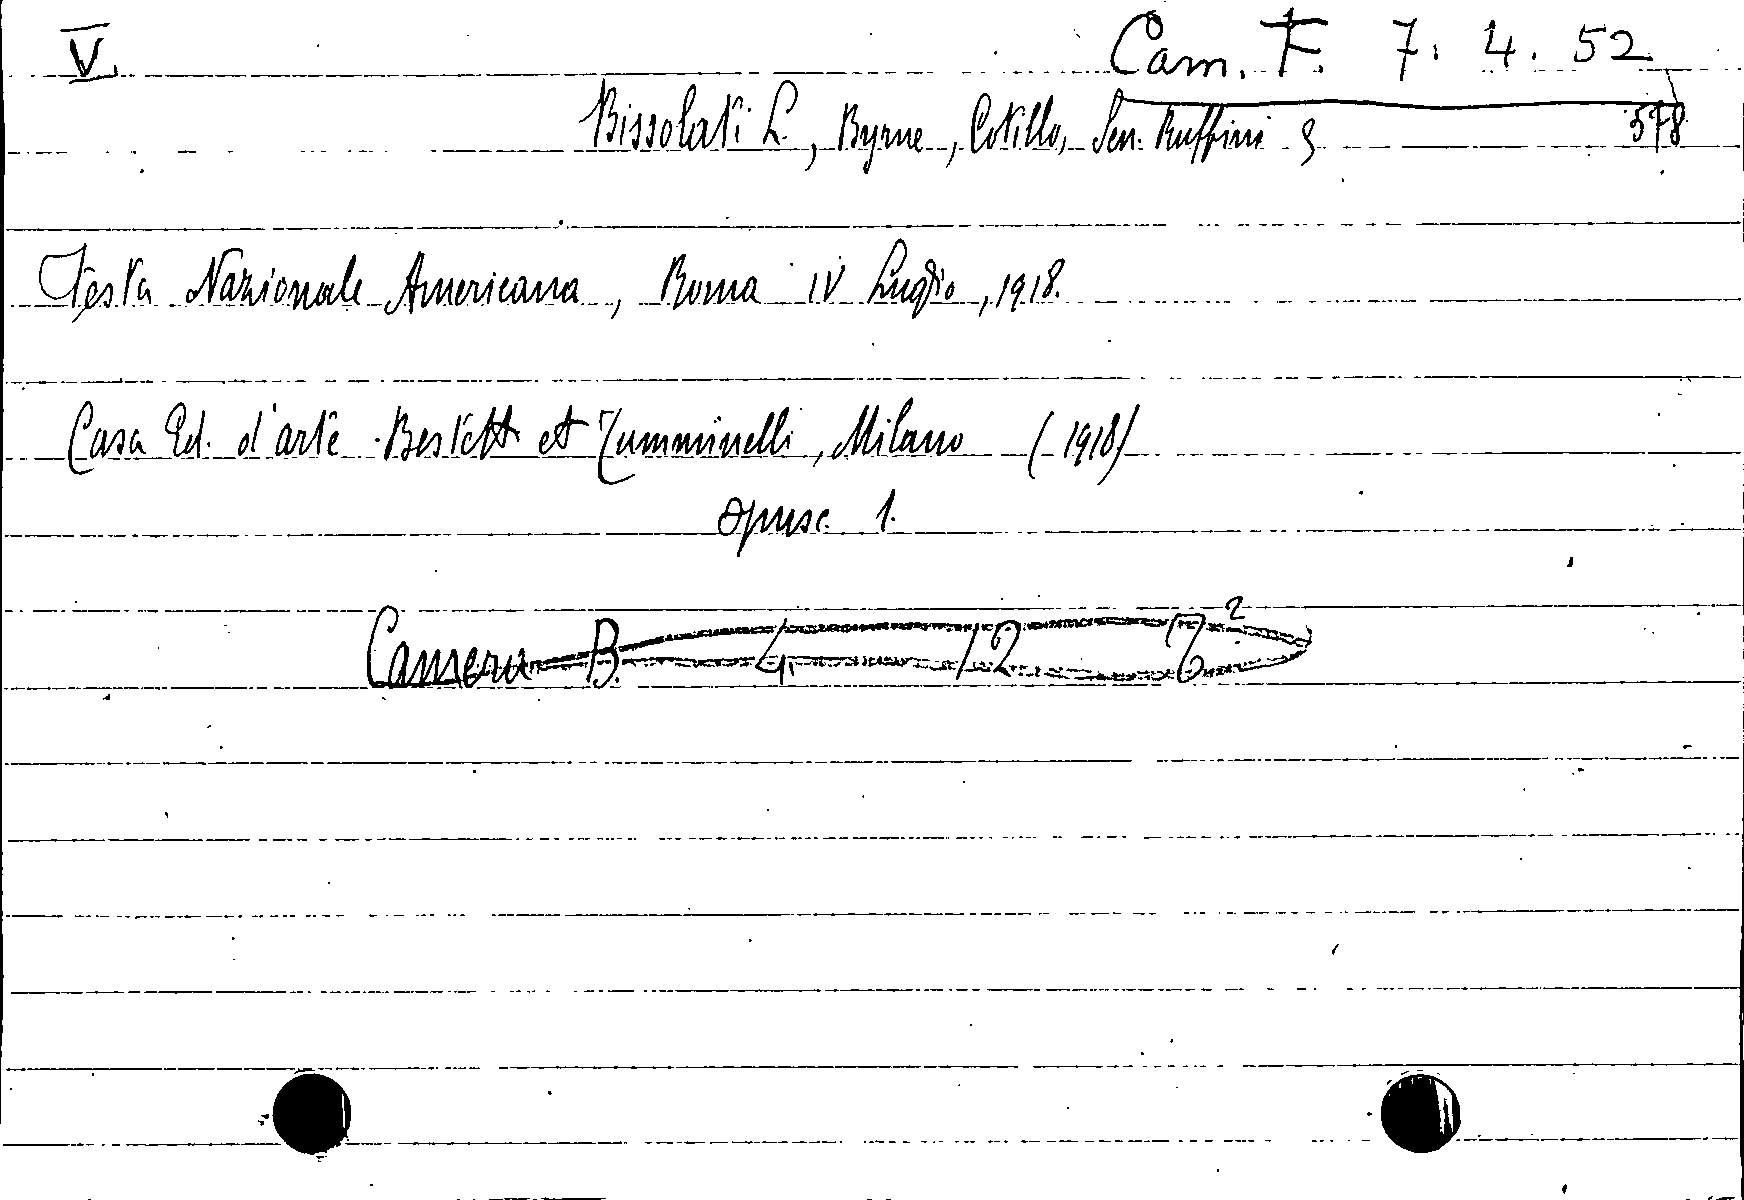 V Cam. F. 7. 4. 52
Bissolati L., Byrne, Cotillo, Sen. Ruffini 578
Festa Nazionale Americana, Roma IV Luglio, 1918.
Casa Ed. d'arte Bestetti et Tumminelli, Milano (1918)
opusc. 1.
Camera B. 4. 12 6²